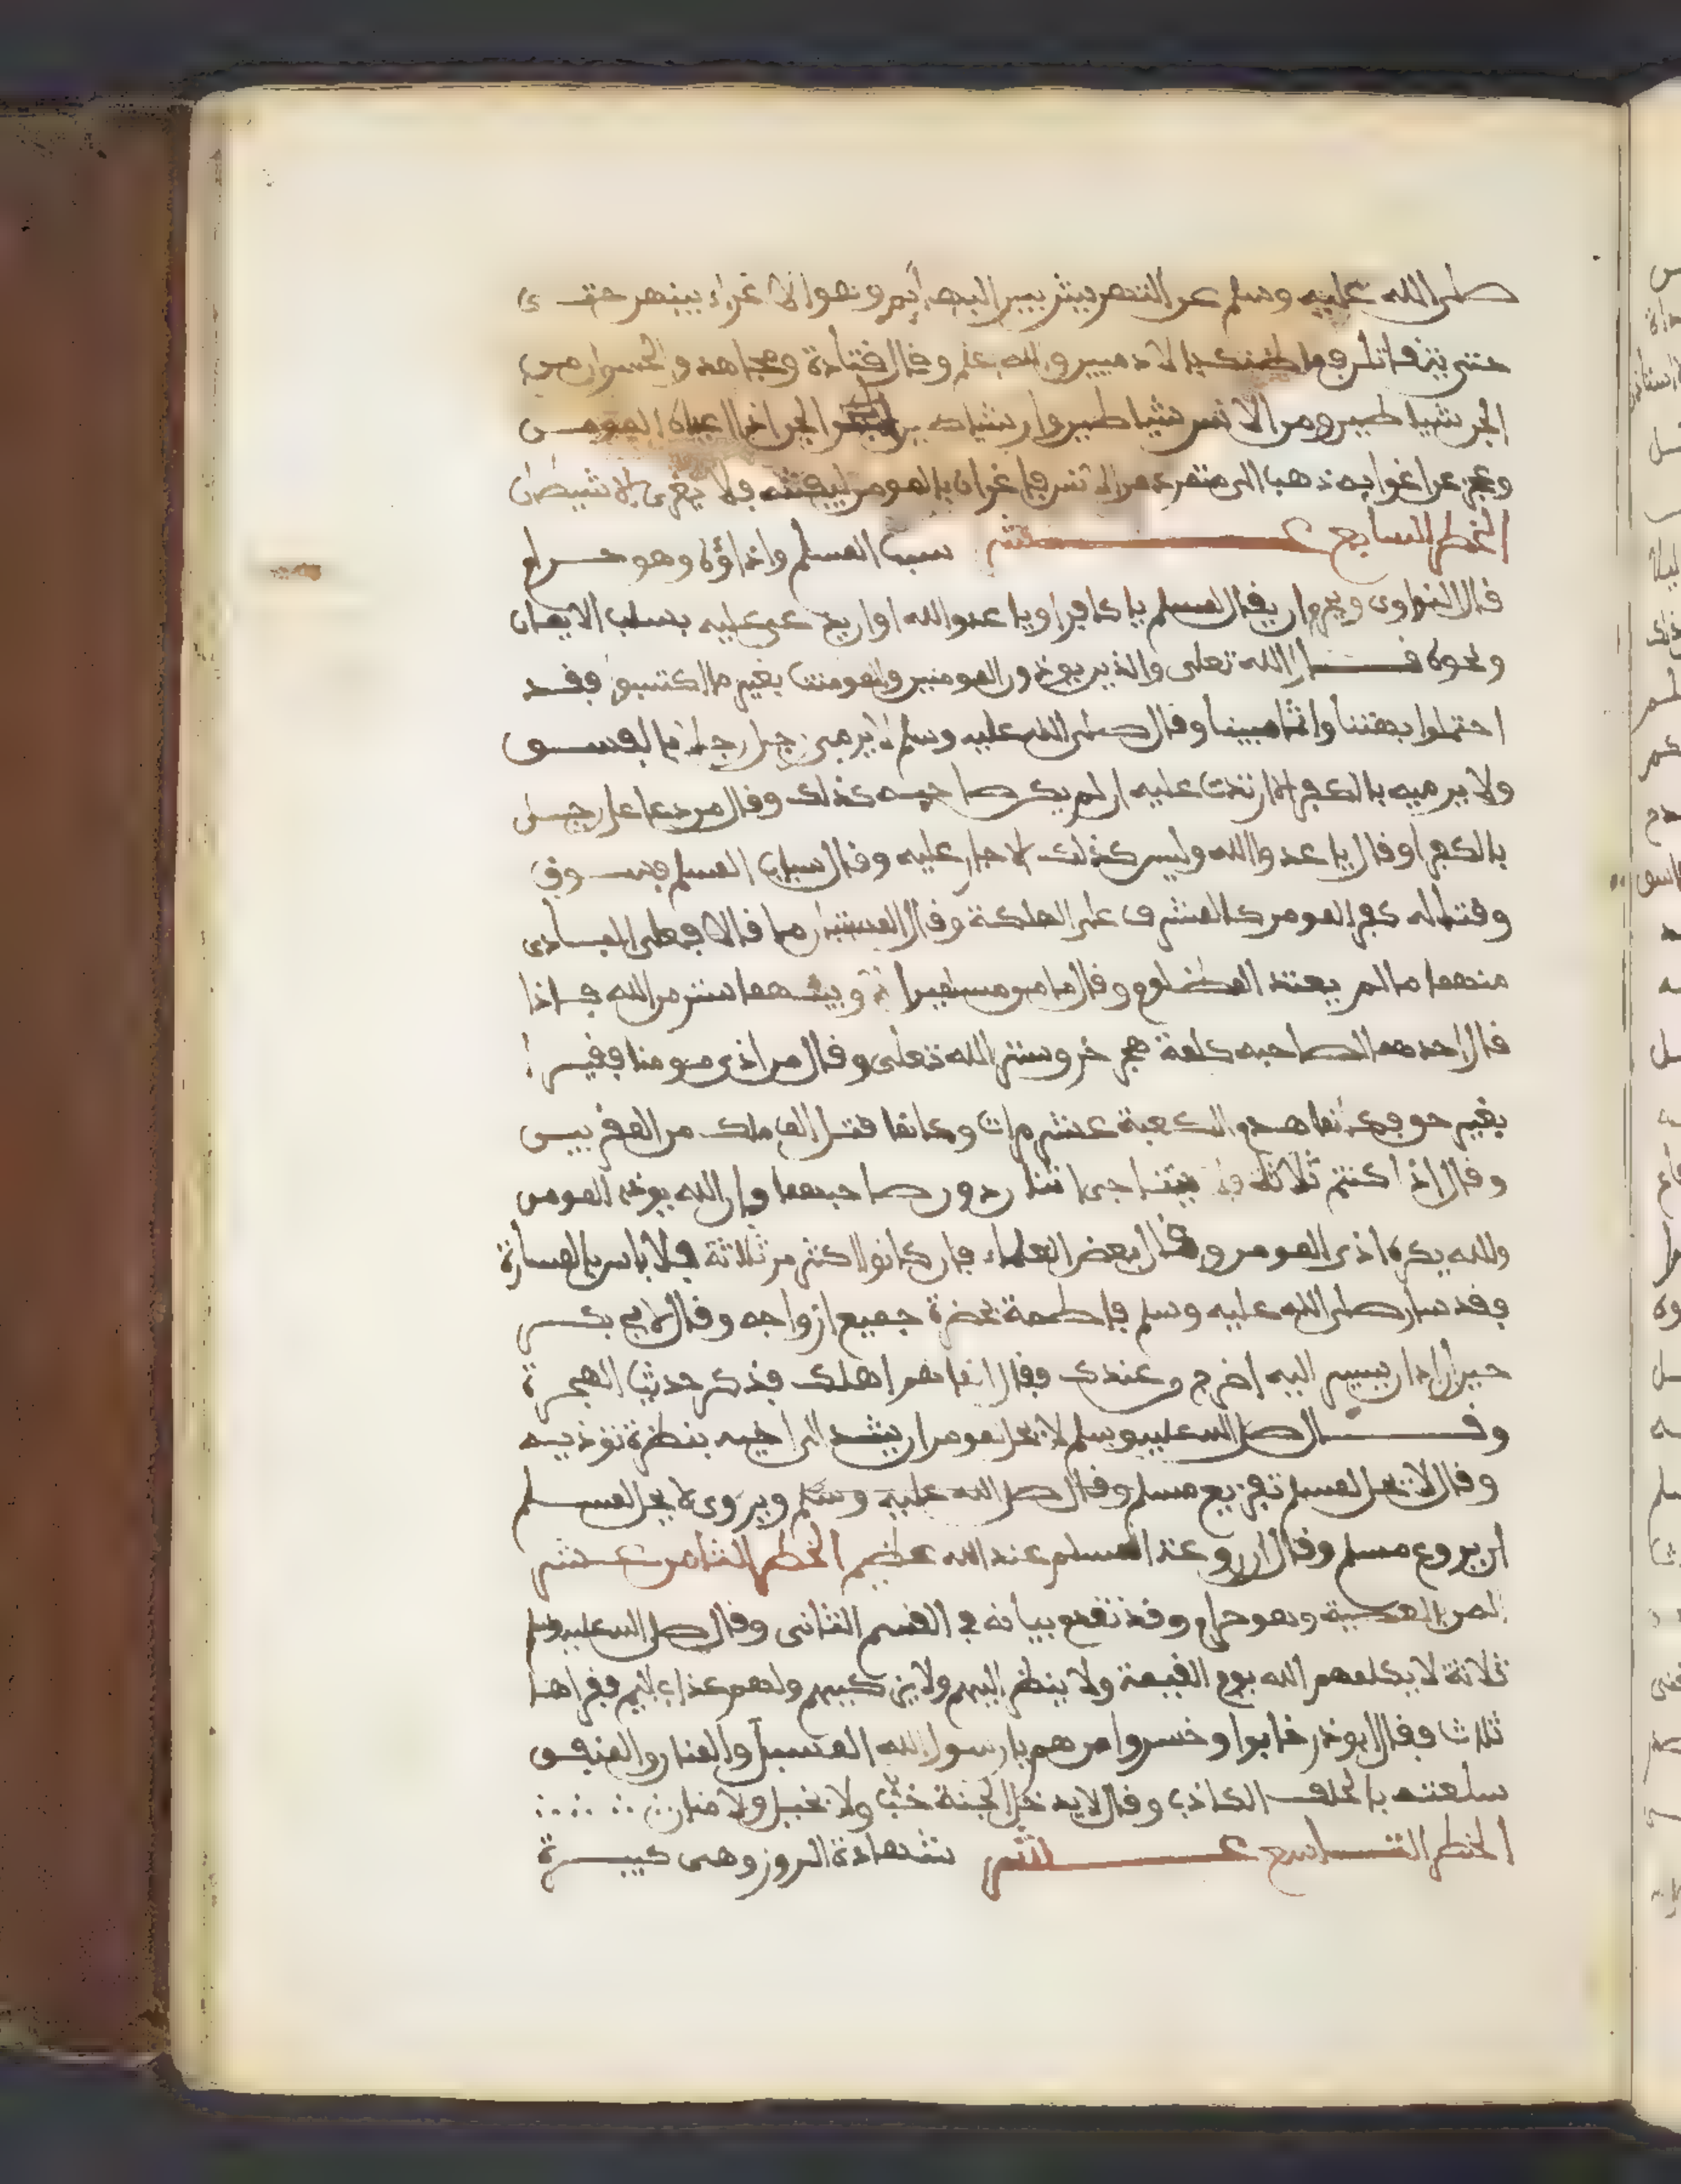 صلى الله عليه وسلم عن التحريش بين البهائم وهو الاغراء بينهم حتى
حتى يتقاتلن فما ظنك بالادميين والله اعلم وقال قتادة ومجاهد والحسن ان من
الجن شياطين ومن الانس شياطين وان الشيطان من الجن اذا اعياه المومن
وعجز عن اغوايه ذهب الى متمرد من الانس فاغراه بالمومن ليفتنه فلا يغرى الا شيطان
الخطر السابع عشر سب المسلم واذاؤه وهو حرام
قال النواوى ويحرم ان يقال لمسلم يا كافر او يا عدو الله او ان يدعى عليه بسلب الايمان
ونحوه قال الله تعلى والذين يوذون المومنين والمومنت بغير ما اكتسبوا فقد
احتملوا بهتنا واثما مبينا وقال صلى الله عليه وسلم لا يرمى رجل رجلا بالفسوق
ولا يرميه بالكفر الا ارتدت عليه ان لم يكن صاحبه كذلك وقال من دعا رجلا
بالكفر او قال يا عدو الله وليس كذلك الا حار عليه وقال سباب المسلم فسوق
وقتاله كفر المومن كالمشرف على الهلكة وقال المستبان ما قالا فعلى البادى
منهما ما لم يعتد المظلوم وقال ما من مسلمين الا وبينهما ستر من الله فاذا
قال احدهما لصاحبه كلمة هجر خرق ستر الله تعلى وقال من اذى مومنا فقيرا
بغير حق فكانما هدم الكعبة عشر مرات وكانما قتل الف ملك من المقربين
وقال اذا كنتم ثلاثة فلا يتناجى اثنان دون صاحبهما فان الله يوذى المومن
والله يكره اذى المومن وقال بعض العلماء فان كانوا اكثر من ثلاثة فلا باس بالمسارة
وقد سار صلى الله عليه وسلم فاطمة بحضرة جميع ازواجه وقال لابى بكر
حين اراد ان يسر اليه اخرج من عندك فقال انما هم اهلك فذكر حديث الهجرة
وقال صلى الله عليه وسلم لا يحل لمومن ان يشد الى اخيه بنظرة توذيه
وقال لا يحل لمسلم تفزيع مسلم وقال صلى الله عليه وسلم ويروى لا يحل لمسلم
ان يروع مسلم وقال ان روعة المسلم عند الله عظيم الخطر الثامن عشر
المن بالعطية وهو حرام وقد تقدم بيانه فى القسم الثانى وقال صلى الله عليه وسلم
ثلاثة لا يكلمهم الله يوم القيمة ولا ينظر اليهم ولا يزكيهم ولهم عذاب اليم فقراها
ثلاث فقال ابو ذر خابوا وخسروا من هم يا رسول الله المسبل والمنان والمنفق
سلعته بالحلف الكاذب وقال لا يدخل الجنة خب ولا بخيل ولا منان
الخطر التاسع عشر شهادة الزور وهى كبيرة